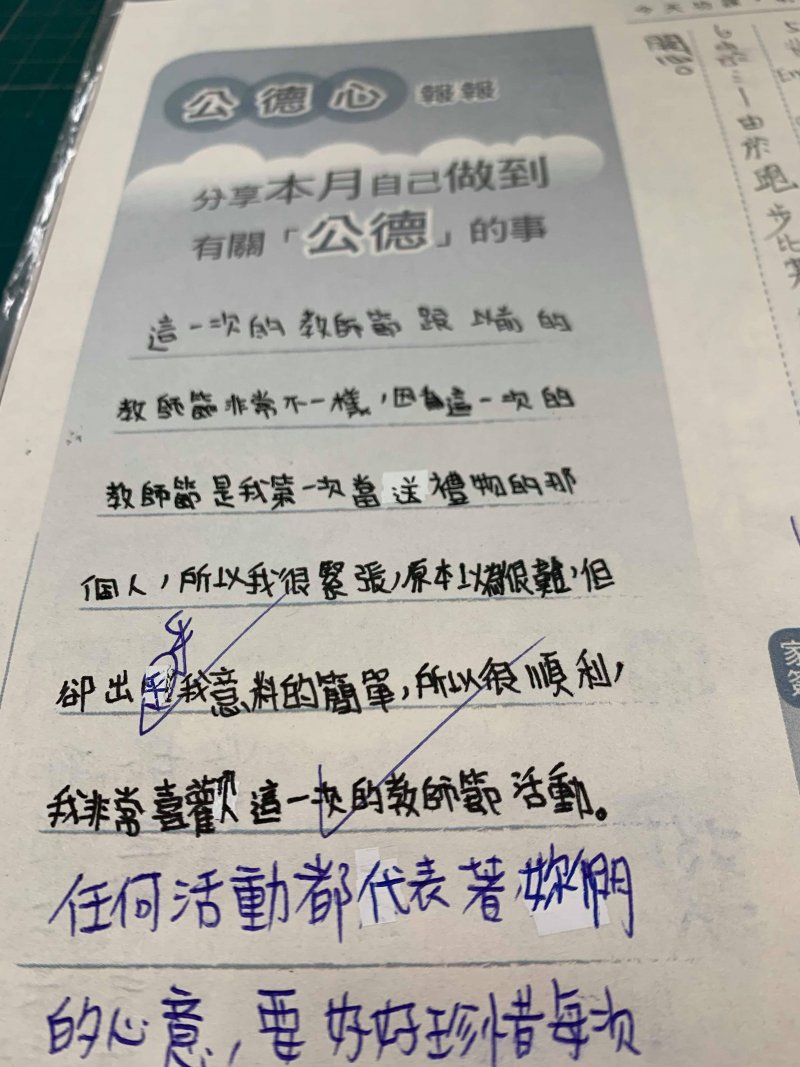 公德心 報報
分享本月自己做到
有關「公德」的事
這一次的教師節跟以前的
教師節非常不一樣,因為這一次的
教師節是我第一次當送禮物的那
個人,所以我很緊張,原本以為很難,但
卻出乎我意料的簡單,所以很順利,
我非常喜歡這一次的教師節活動。
任何活動都代表著妳們
的心意,要好好珍惜每次
開心。
由於跑步比
家